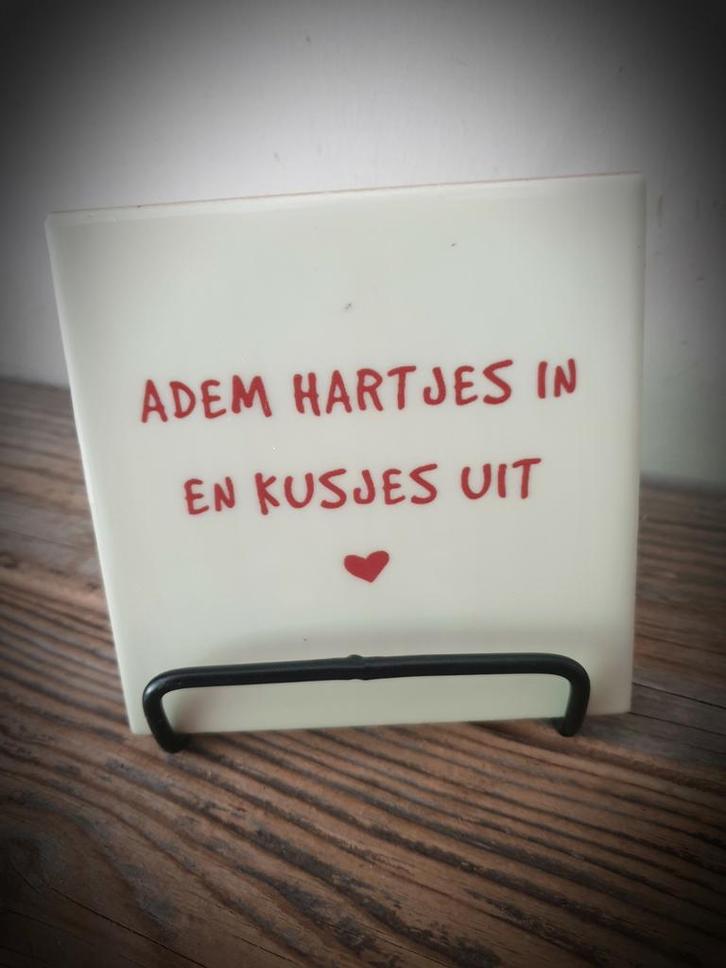 ADEM HARTJES IN
EN KUSJES UIT